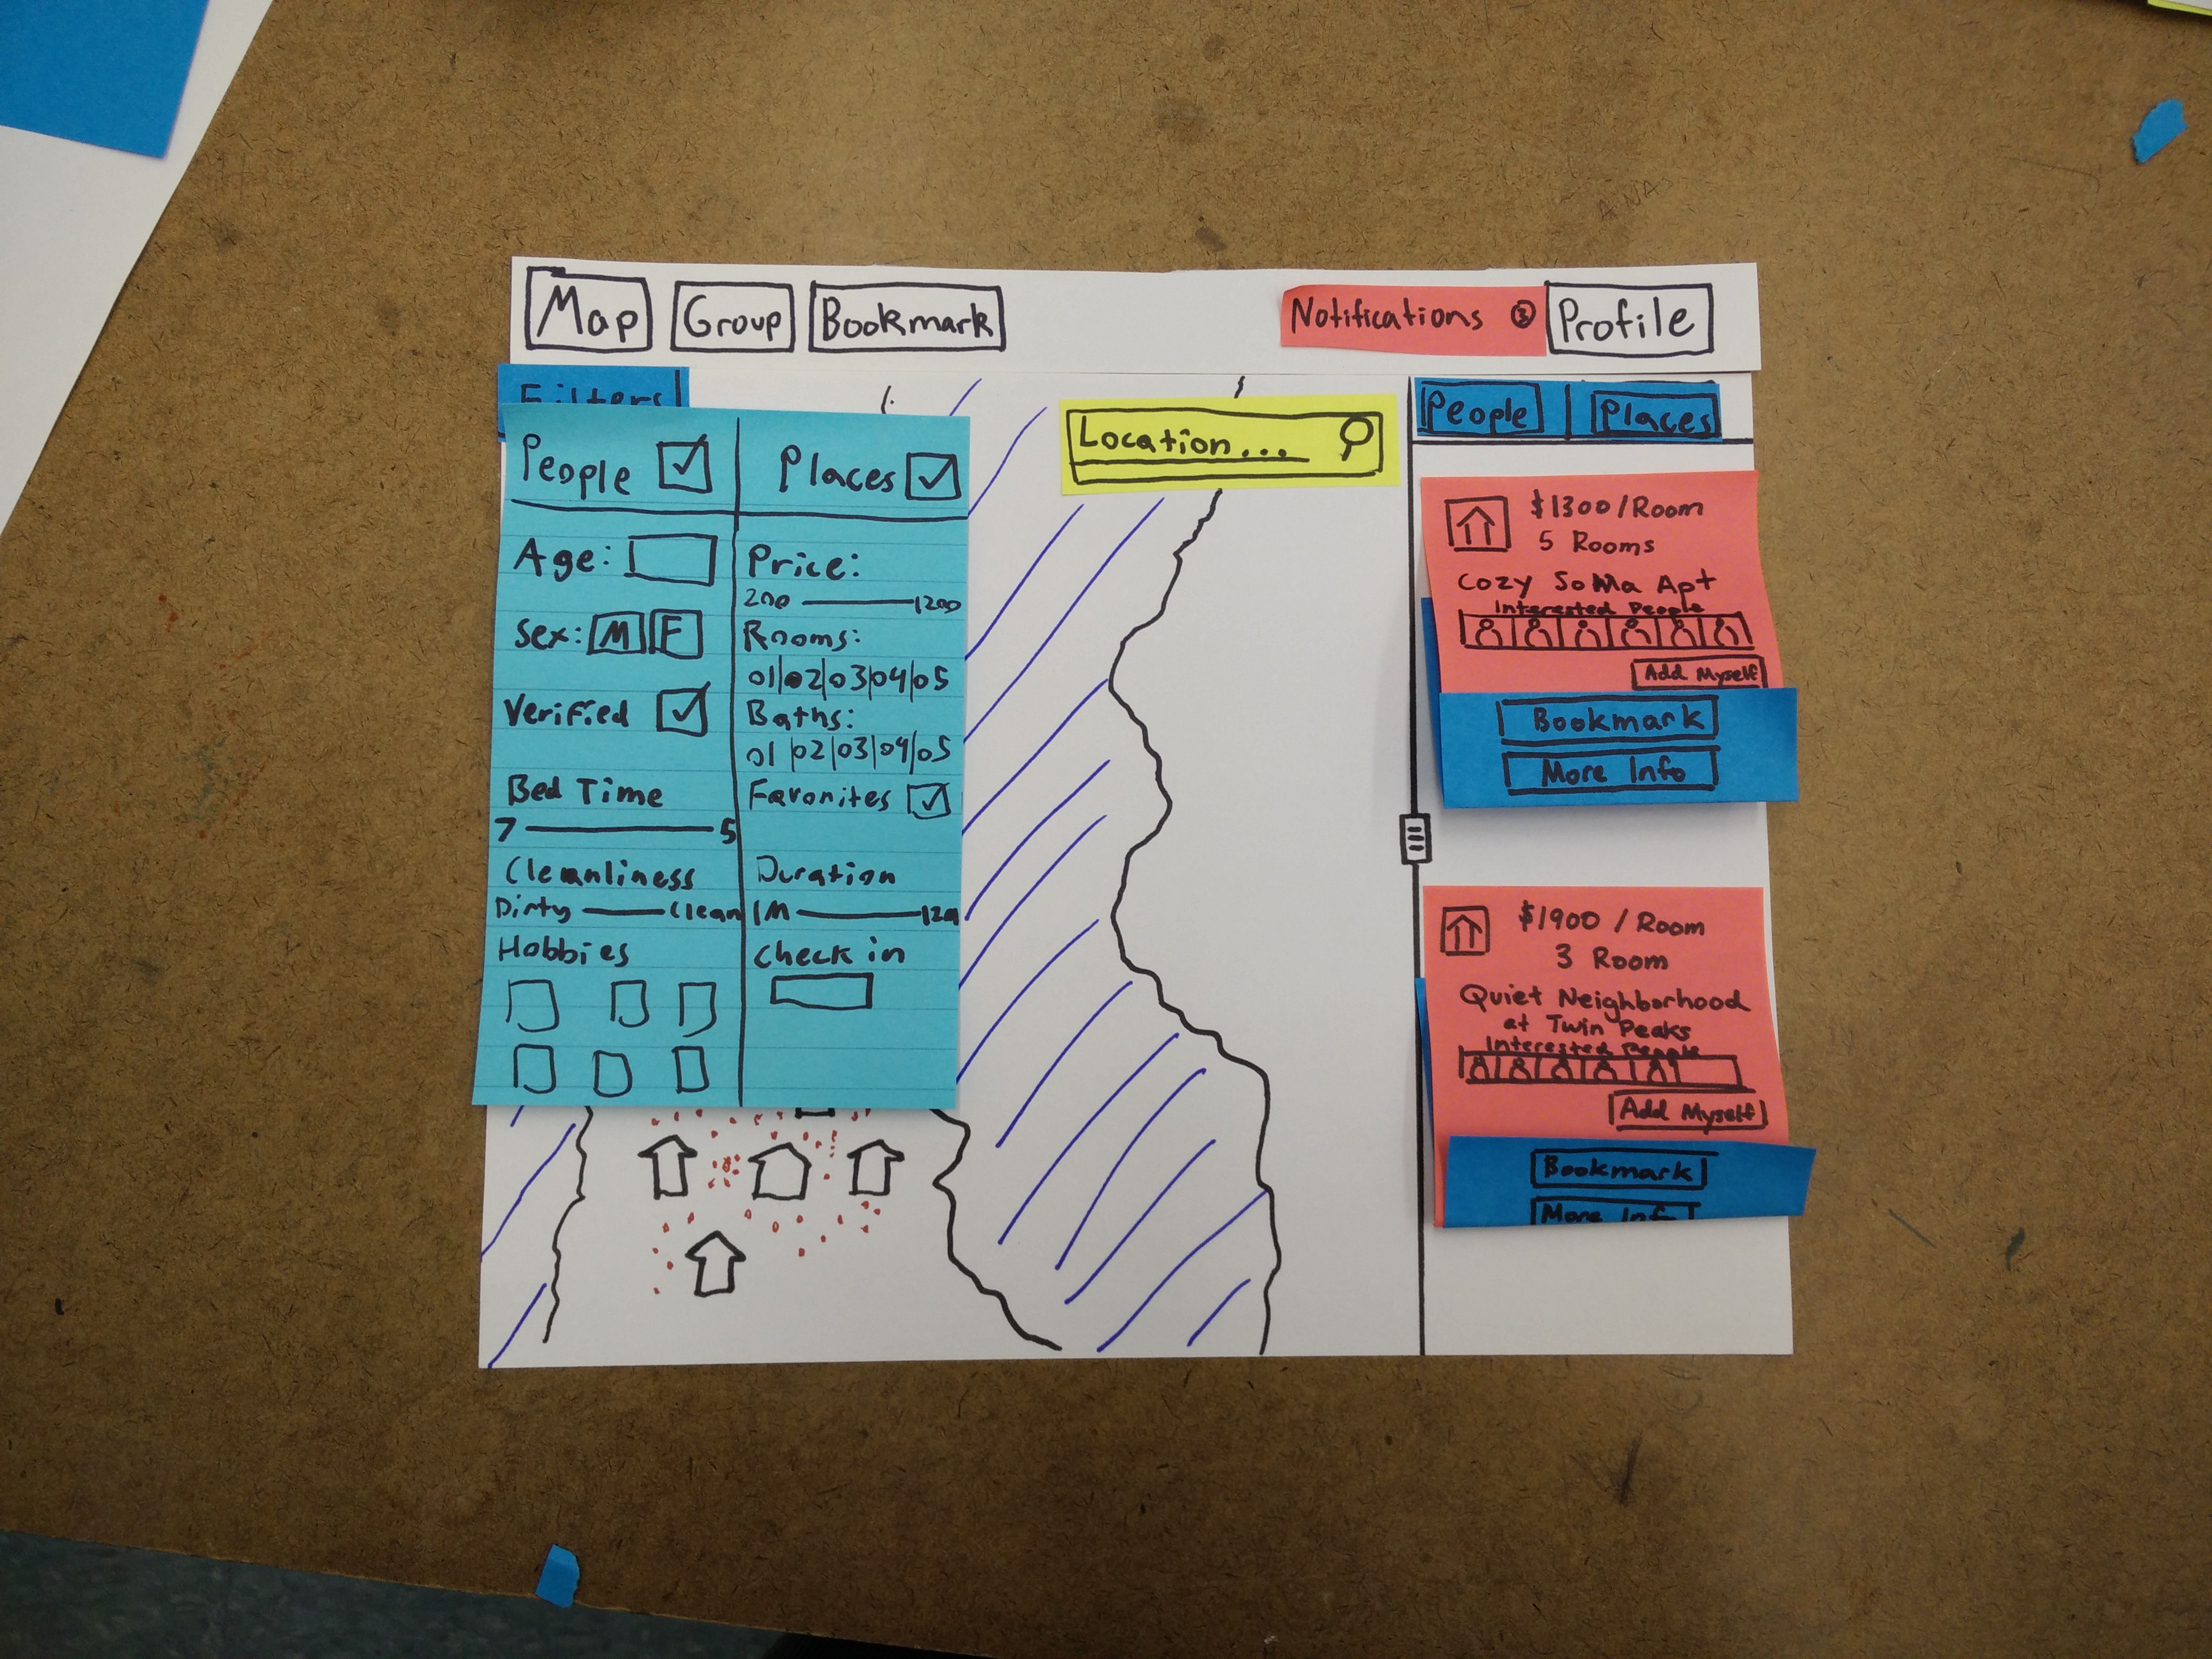 Map
Group
Bookmark
Notifications 3
Profile
Filters
People
Places
Age:
Sex: M F
Verified
Bed Time
7 5
Cleanliness
Dirty Clean
Hobbies
Price:
200 1200
Rooms:
01|02|03|04|05
Baths:
01|02|03|04|05
Favorites
Duration
1M
Check in
Location...
People
Places
$1300/Room
5 Rooms
Cozy SoMa Apt
Interested People
Add Myself
Bookmark
More Info
$1900 / Room
3 Room
Quiet Neighborhood
at Twin Peaks
Interested People
Add Myself
Bookmark
More Info